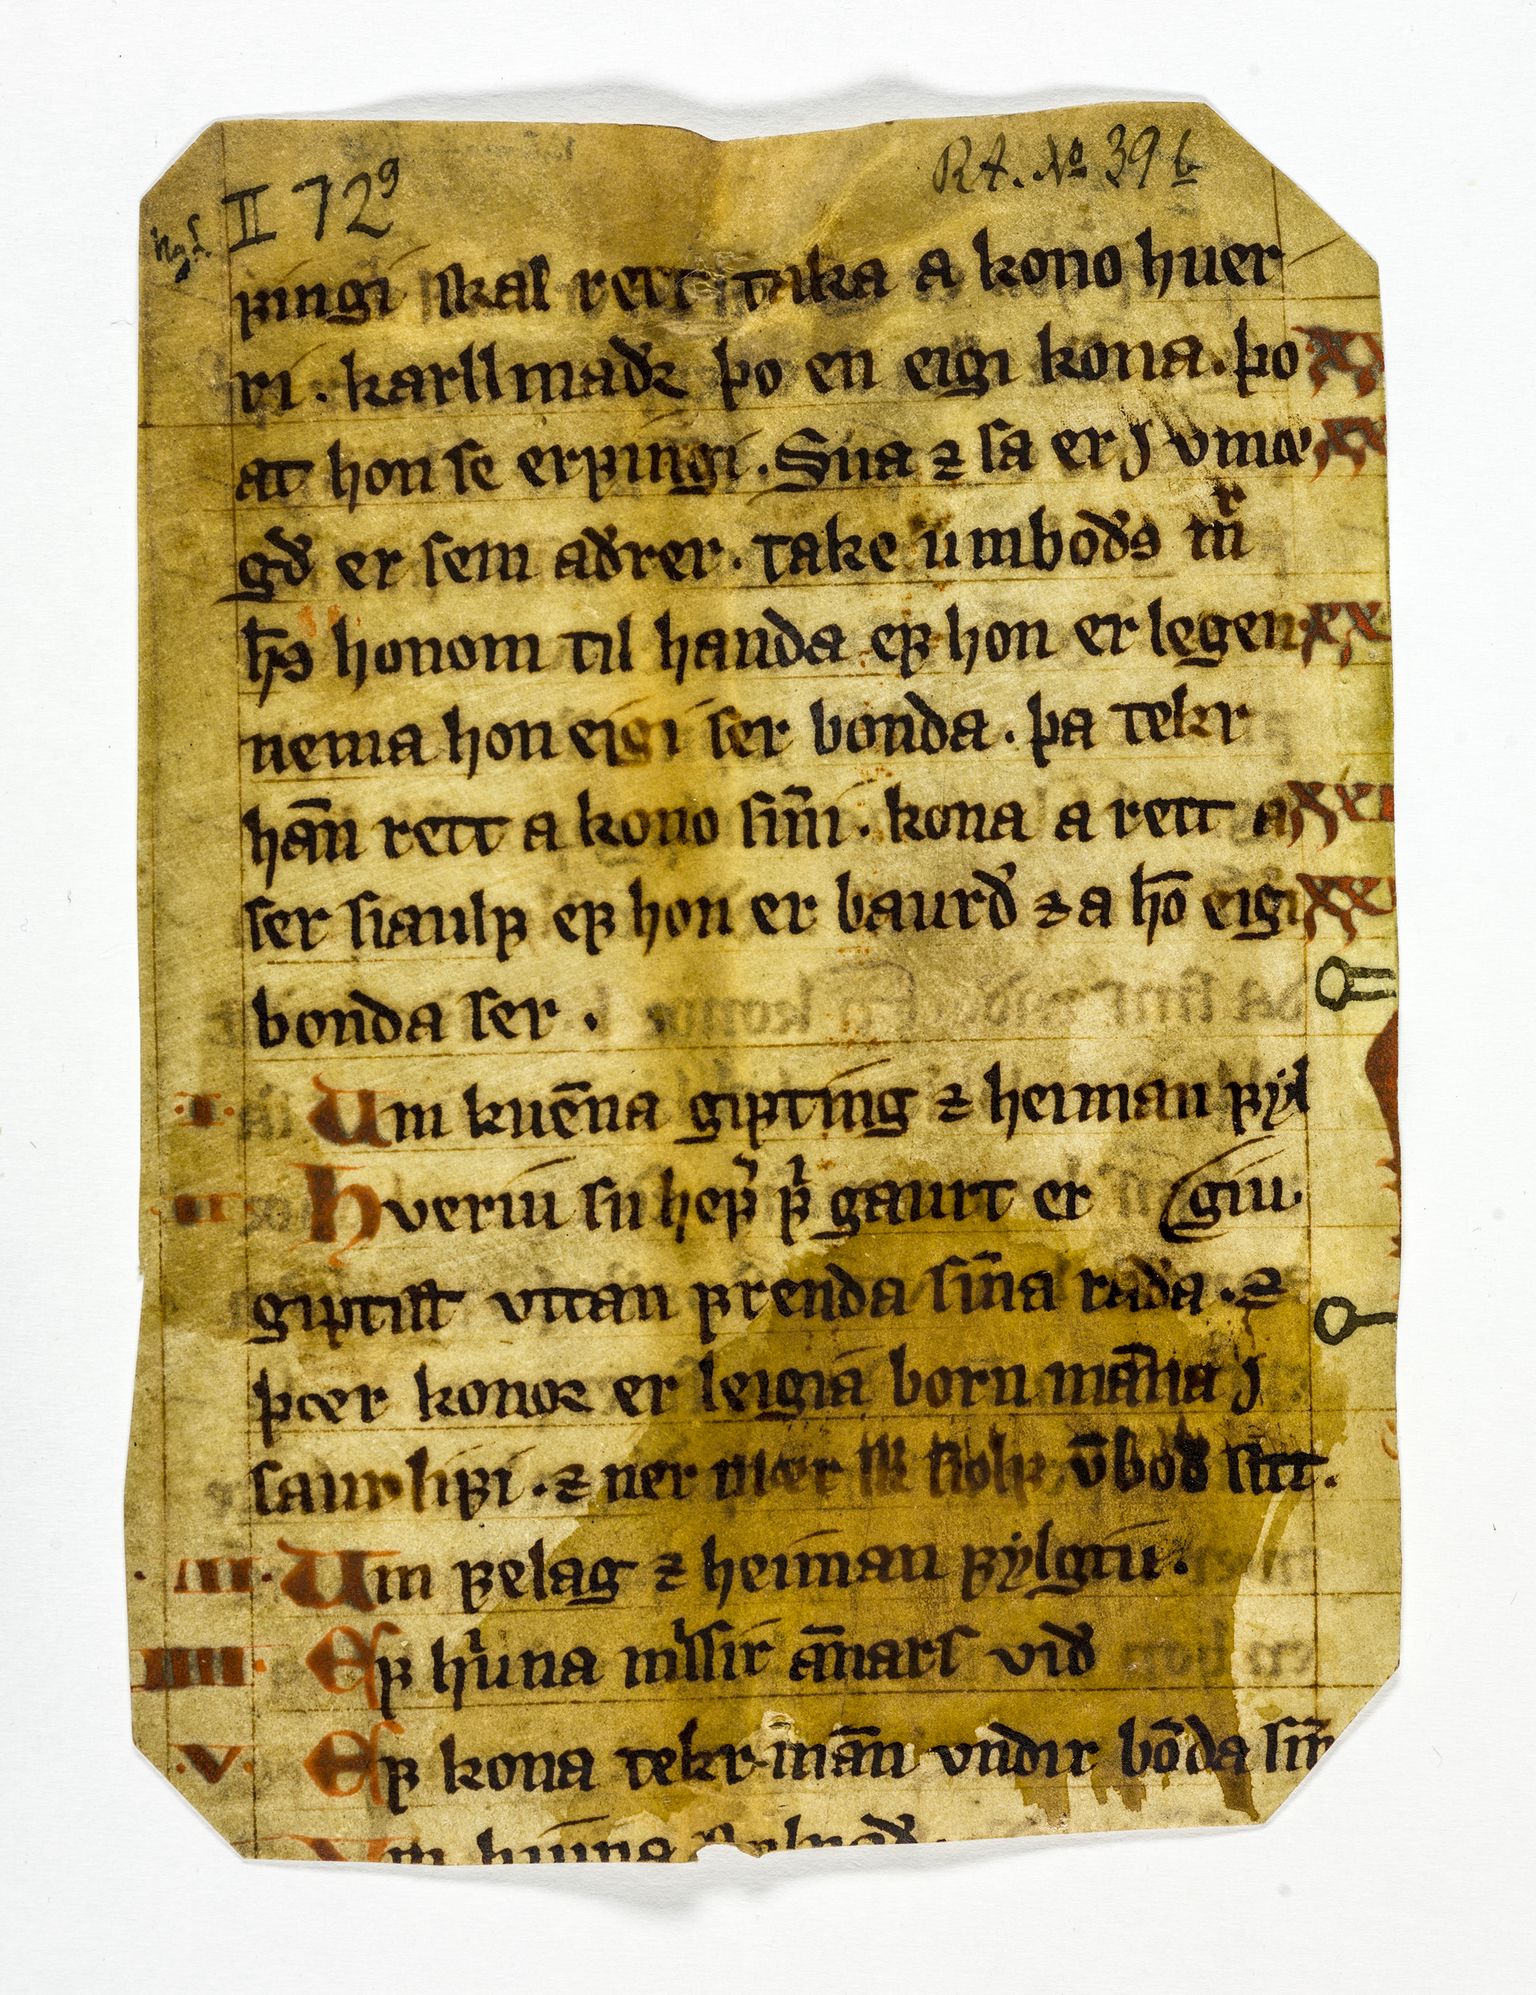 N.g.L. II 72⁹ RA. № 39 b
fingi skal rett taka a kono huer
ri . karllmaðꝛ þo en eigi kona . þo XX
at hon se erfingi . Sua ⁊ sa er j vmœ XX
gð er sem aðrer . take umboðs mͬ
hs̄ honom til handa ef hon er legen XX
nema hon eigi ser bonda . þa tekr
han̄ rett a kono sin̄i . kona a rett a XXI
ser siaulf ef hon er baurð ⁊ a hō eigi XXI
bonda ser .
.I. Um kuēna gifting ⁊ heiman fyl
.II. Hveriu su hef͛ fͥ gaurt er (giu.
giftist vttan frenda sin̄a raða . ⁊
þœr konoꝛ er leigia born man̄a j
saurlifi . ⁊ ner mœr sk̄ siolf v̄boð sitt .
. III . Um felag ⁊ heiman fylgiu .
IIII Ef hͥuna mͥssir an̄ars við
.V. Ef kona tekr in̄ man̄ vndir bōda sin̄
Vm hiuna